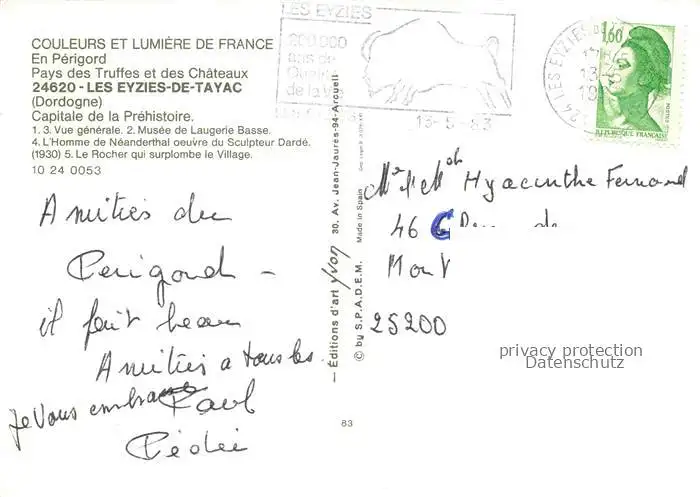 COULEURS ET LUMIÈRE DE FRANCE
En Périgord
Pays des Truffes et des Châteaux
24620 - LES EYZIES-DE-TAYAC
(Dordogne)
Capitale de la Préhistoire.
1. 3. Vue générale. 2. Musée de Laugerie Basse.
4. L'Homme de Néanderthal oeuvre du Sculpteur Dardé.
(1930) 5. Le Rocher qui surplombe le Village.
10 24 0053
Amitiés du
Perigord -
il fait beau
Amitiés a tous les
Je vous embrasse Paul
— Éditions d'art yvon 30, Av. Jean-Jaurès-94-Arcueil
© by S.P.A.D.E.M. Made in Spain
83
LES EYZIES
200.000
ans de
de la
13-5-83
24 LES EYZIES
1,60
RÉPUBLIQUE FRANÇAISE
Hyacinthe Fernand
46
Mont
25200
privacy protection
Datenschutz